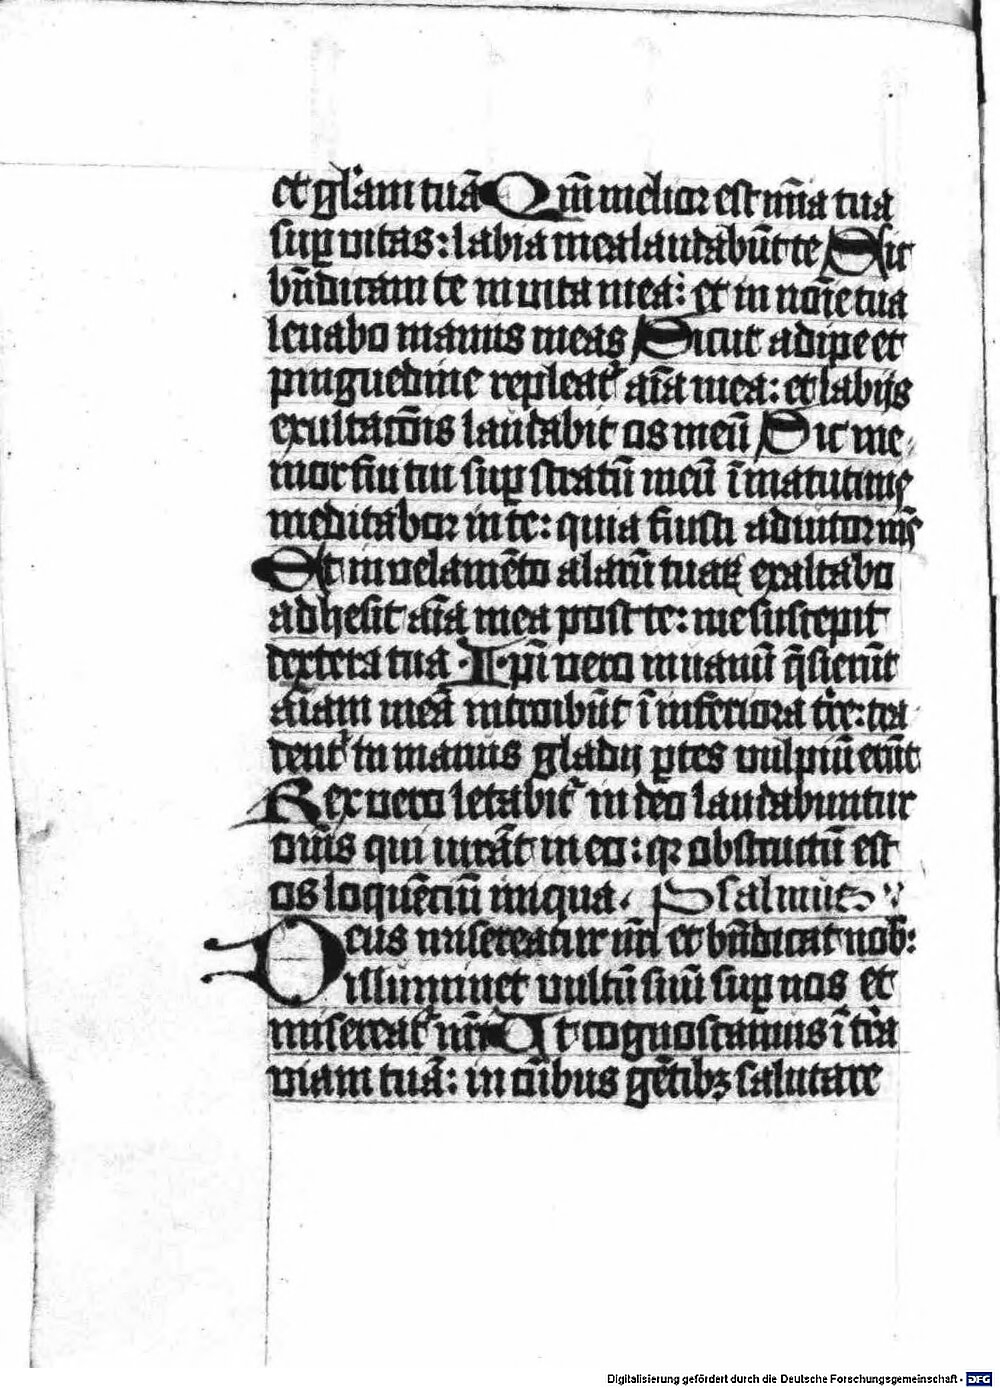 et gl'am tuā Qm̄ melior est mīa tua
sup vitas: labia mea laudabūt te Sic
bn̄dicam te in vita mea: et in noīe tuo
leuabo manus meas Sicut adipe et
pinguedine repleat' aīa mea: et labijs
exultacōis laudabit os meū Si me-
mor fui tui sup stratū meū ī matutinis
meditabor in te: quia fuisti adiutor m̄s
Et in velamēto alarū tuaꝝ exaltabo
adhesit aīa mea post te: me suscepit
dextera tua Ipi vero in vanū q̄sierūt
aīam meā introibūt ī inferiora tr̄e: tra
dent' in manus gladij ptes vulpiū erūt
Rex vero letabit' in deo laudabuntur
om̄s qui iurāt in eo: qꝛ obstructū est
os loquēciū iniqua. Psalmus
Deus misereatur nr̄i et bn̄dicat nob:
illuminet vultū suū sup nos et
misereat' nr̄i Ut cognoscamus ī tr̄a
viam tuā: in om̄ibus gētibꝫ salutare
Digitalisierung gefördert durch die Deutsche Forschungsgemeinschaft - DFG